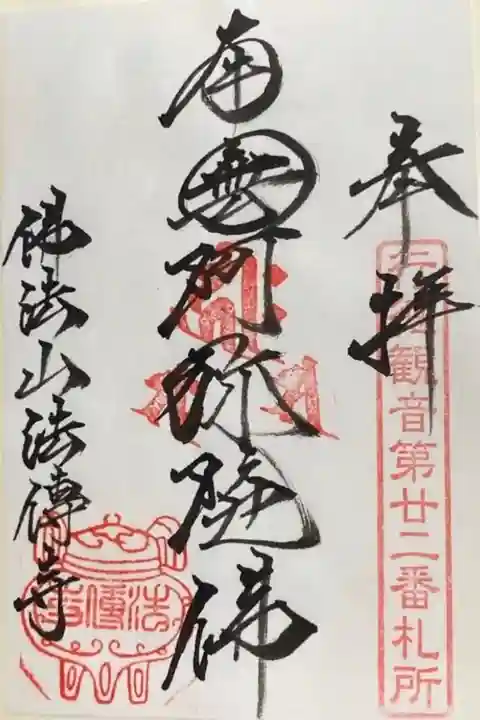 奉拝
観音第廿二番札所
南無阿弥陀佛
佛法山法傳寺
法傳寺